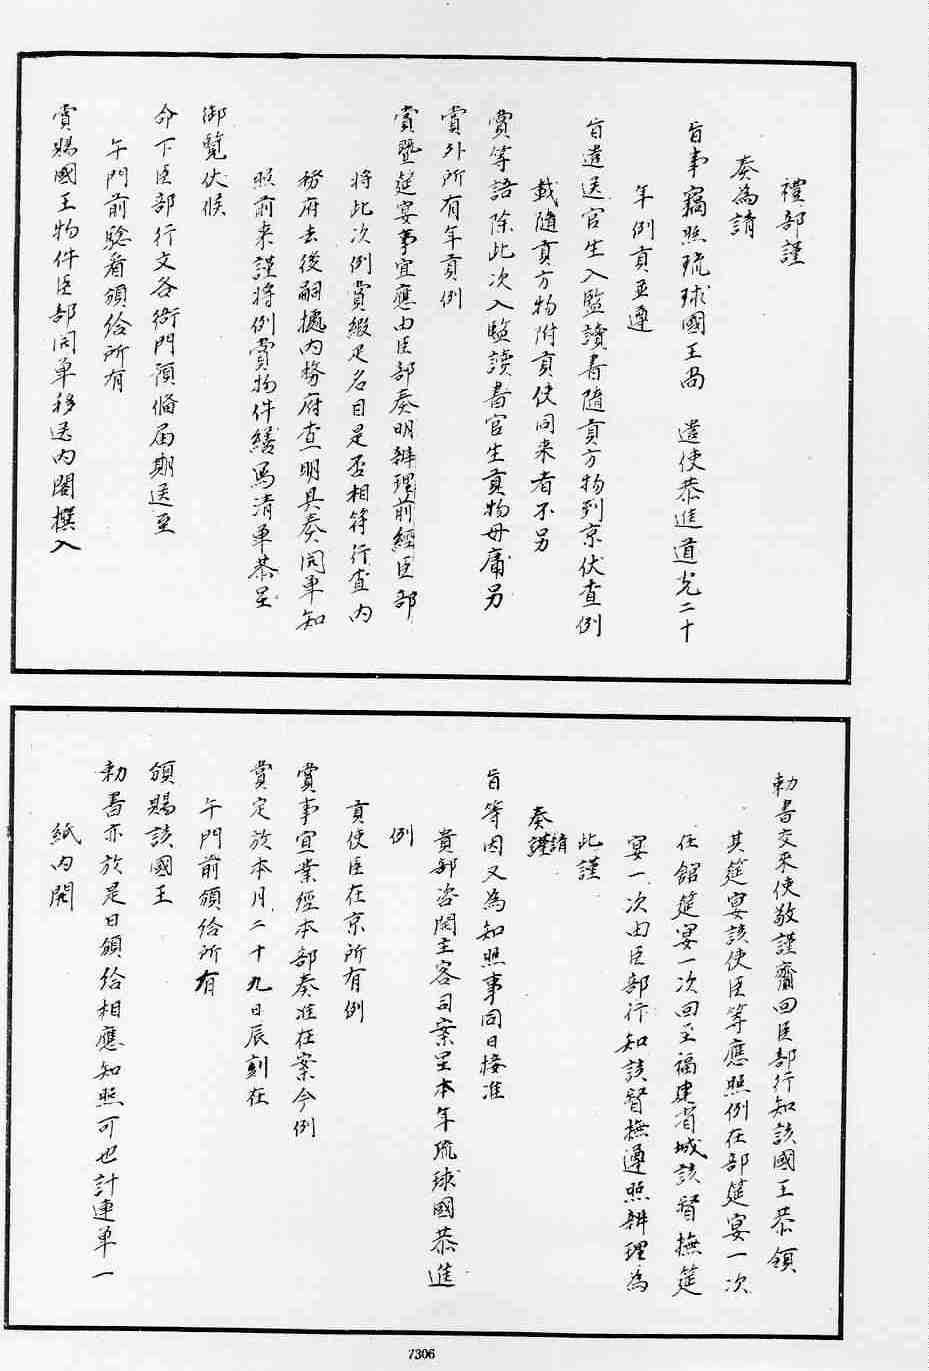 禮部謹
奏為請
旨事竊照琉球國王尚　遣使恭進道光二十
年例貢並遵
旨遣送官生入監讀書隨貢方物到京伏查例
載隨貢方物附貢使同来者不另
賞等語除此次入監讀書官生貢物毋庸另
賞外所有年貢例
賞暨筵宴事宜應由臣部奏明辦理前經臣部
將此次例賞緞疋名目是否相符行查内
務府去後嗣據内務府查明具奏開单知
照前来謹将例賞物件繕寫清单恭呈
御覽伏候
命下臣部行文各衙門預備届期送至
午門前驗看頒給所有
賞賜國王物件臣部開单移送内閣撰入
勅書交来使敬謹齎回臣部行知該國王恭領
其筵宴該使臣等應照例在部筵宴一次
在館筵宴一次回至福建省城該督撫筵
宴一次由臣部行知該督撫遵照辦理為
此謹
奏謹請
旨等因又為知照事同日接准
貴部咨開主客司案呈本年琉球國恭進
例
貢使臣在京所有例
賞事宜業經本部奏准在案今例
賞定於本月二十九日辰刻在
午門前頒給所有
頒賜該國王
勅書亦於是日頒給相應知照可也計連单一
紙内開
7306